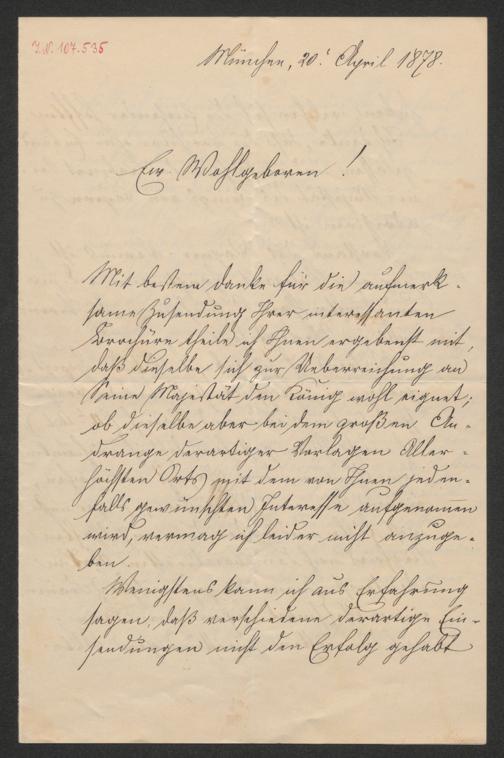 J.N. 167.535
München, 20. April 1878.
Ew. Wohlgeboren!
Mit bestem Danke für die aufmerk-
same Zusendung Ihrer interessanten
Brochüre theile ich Ihnen ergebenst mit,
daß dieselbe sich zur Ueberreichung an
Seine Majestät den König wohl eignet;
ob dieselbe aber bei dem großen An-
drange derartiger Vorlagen Aller-
höchsten Orts mit dem von Ihnen jeden-
falls gewünschten Interesse aufgenommen
wird, vermag ich leider nicht anzuge-
ben.
Wenigstens kann ich aus Erfahrung
sagen, daß verschiedene derartige Ein-
sendungen nicht den Erfolg gehabt